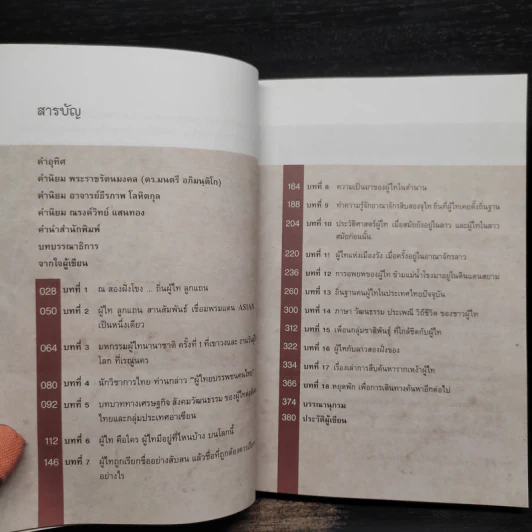 สารบัญ
คำอุทิศ
คำนิยม พระราชรัตนมงคล (ดร.มนตรี อภิมนฺติโก)
คำนิยม อาจารย์ธีรภาพ โลหิตกุล
คำนิยม ณรงค์วิทย์ แสนทอง
คำนำสำนักพิมพ์
บทบรรณาธิการ
จากใจผู้เขียน
028 บทที่ 1 ณ สองฝั่งโขง ... ถิ่นผู้ไท ลูกแถน
050 บทที่ 2 ผู้ไท ลูกแถน สานสัมพันธ์ เชื่อมพรมแดน ASIAN
เป็นหนึ่งเดียว
064 บทที่ 3 มหกรรมผู้ไทนานาชาติ ครั้งที่ 1 ที่เขาวงและ
โลก ที่เรณูนคร
080 บทที่ 4 นักวิชาการไทย ท่านกล่าว "ผู้ไทบรรพชนคนไทย"
092 บทที่ 5 บทบาททางเศรษฐกิจ สังคมวัฒนธรรม ของผู้ไท
ไทยและกลุ่มประเทศอาเซียน
112 บทที่ 6 ผู้ไท คือใคร ผู้ไทมีอยู่ที่ไหนบ้าง บนโลกนี้
146 บทที่ 7 ผู้ไทถูกเรียกชื่ออย่างสับสน แล้วชื่อที่ถูกต้อง
อย่างไร
164 บทที่ 8 ความเป็นมาของผู้ไทในตำนาน
188 บทที่ 9 ทำความรู้จักอาณาจักรสิบสองจุไท ถิ่นที่ผู้ไทเคยตั้งถิ่นฐาน
204 บทที่ 10 ประวัติศาสตร์ผู้ไท เมื่อสมัยอยู่ในลาว และผู้ไทในลาว
สมัยก่อนนั้น
220 บทที่ 11 ผู้ไทแห่งเมืองวัง เมื่อครั้งอยู่ในอาณาจักรลาว
236 บทที่ 12 การอพยพของผู้ไท ข้ามแม่น้ำโขงมาอยู่ในดินแดนสยาม
260 บทที่ 13 ถิ่นฐานคนผู้ไทในประเทศไทยปัจจุบัน
300 บทที่ 14 ภาษา วัฒนธรรม ประเพณี วิถีชีวิต ของชาวผู้ไท
312 บทที่ 15 เพื่อนกลุ่มชาติพันธุ์ ที่ใกล้ชิดกับผู้ไท
322 บทที่ 16 ผู้ไทกับลาวสองฝั่งของ
334 บทที่ 17 เรื่องเล่าการสืบค้นหารากเหง้าผู้ไท
366 บทที่ 18 หยุดพัก เพื่อการเดินทางค้นหาอีกต่อไป
374 บรรณานุกรม
380 ประวัติผู้เขียน